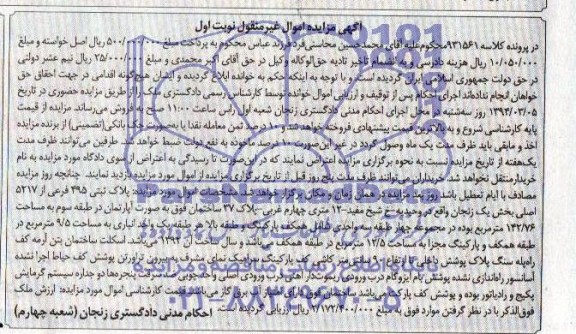 آگهی مزایده اموال غیرمنقول نوبت اول
در پرونده کلاسه ۹۳۱۵۶۱ محکوم‌علیه آقای محمدحسین محاسنی‌فرد فرزند عباس محکوم به پرداخت مبلغ ۵۰۰/۰۰۰/۰۰۰ ریال اصل خواسته و مبلغ
۱۰/۰۵۰/۰۰۰ ریال هزینه دادرسی و به انضمام تاخیر تادیه حق‌الوکاله وکیل در حق آقای اکبر محمدی و مبلغ ۲۵/۰۰۰/۰۰۰ ریال نیم عشر دولتی
در حق دولت جمهوری اسلامی ایران گردیده است و با توجه به اینکه حکم به خوانده ابلاغ گردیده و ایشان هیچ‌گونه اقدامی در جهت احقاق حق
خواهان انجام نداده‌اند اجرای احکام پس از توقیف و ارزیابی اموال خوانده توسط کارشناس رسمی دادگستری ملک را از طریق مزایده حضوری در تاریخ
۱۳۹۴/۰۳/۰۵ روز سه‌شنبه در محل اجرای احکام مدنی دادگستری زنجان شعبه اول راس ساعت ۱۱:۰۰ صبح به فروش می‌رساند. مزایده از قیمت
پایه کارشناسی شروع و به بالاترین قیمت پیشنهادی فروخته خواهد شد و ده درصد ثمن معامله نقدا یا به‌صورت چک بانکی (تضمینی) از برنده مزایده
اخذ و مابقی باید ظرف مدت یک ماه وصول گردد در غیر این‌صورت ده درصد ماخوذه به نفع دولت ضبط خواهد شد. طرفین می‌توانند ظرف مدت
یک‌هفته از تاریخ مزایده نسبت به نحوه برگزاری مزایده اعتراض نمایند که در این‌صورت تا رسیدگی به اعتراض از سوی دادگاه مورد مزایده به نام
خریدار منتقل نخواهد شد. خریداران می‌توانند ظرف مدت پنج روز قبل از تاریخ برگزاری مزایده از اموال مورد مزایده بازدید نمایند. چنانچه روز مزایده
مصادف با ایام تعطیل باشد روز بعد مزایده در همان زمان و مکان برگزار خواهد شد. مشخصات اموال مورد مزایده: پلاک ثبتی ۴۹۵ فرعی از ۵۲۱۷
اصلی بخش یک زنجان واقع در وحیدیه- خ شیخ مفید- ۱۲ متری چهارم غربی- پلاک ۳۷ ساختمان فوق به صورت آپارتمان در طبقه سوم به مساحت
۱۴۲/۷۶ مترمربع بوده در مجموعه چهار طبقه سه واحدی شامل همکف پارکینگ و طبقه بالا هر طبقه یک واحد انباری به مساحت ۹/۵ مترمربع در
طبقه همکف و پارکینگ مجزا به مساحت ۱۲/۵ مترمربع در طبقه همکف می‌باشد و سال ساخت آن ۱۳۹۲ می‌باشد. اسکلت ساختمان بتن آرمه کف
آسانسور راه‌اندازی نشده پوشش بام ایزوگام درب ورودی
پکیج و رادیاتور بوده و پوشش کف پارکت
فوق‌الذکر با در نظر گرفتن موارد فوق به مبلغ ۲/۱۷۲/۴۰۰/۰۰۰ ریال ارزیابی گردیده است.
احکام مدنی دادگستری زنجان (شعبه چهارم)
ParsNamadData
پایگاه اطلاع رسانی مناقصه و مزایده
۰۲۱-۸۸۳۴۹۶۷۰-۵